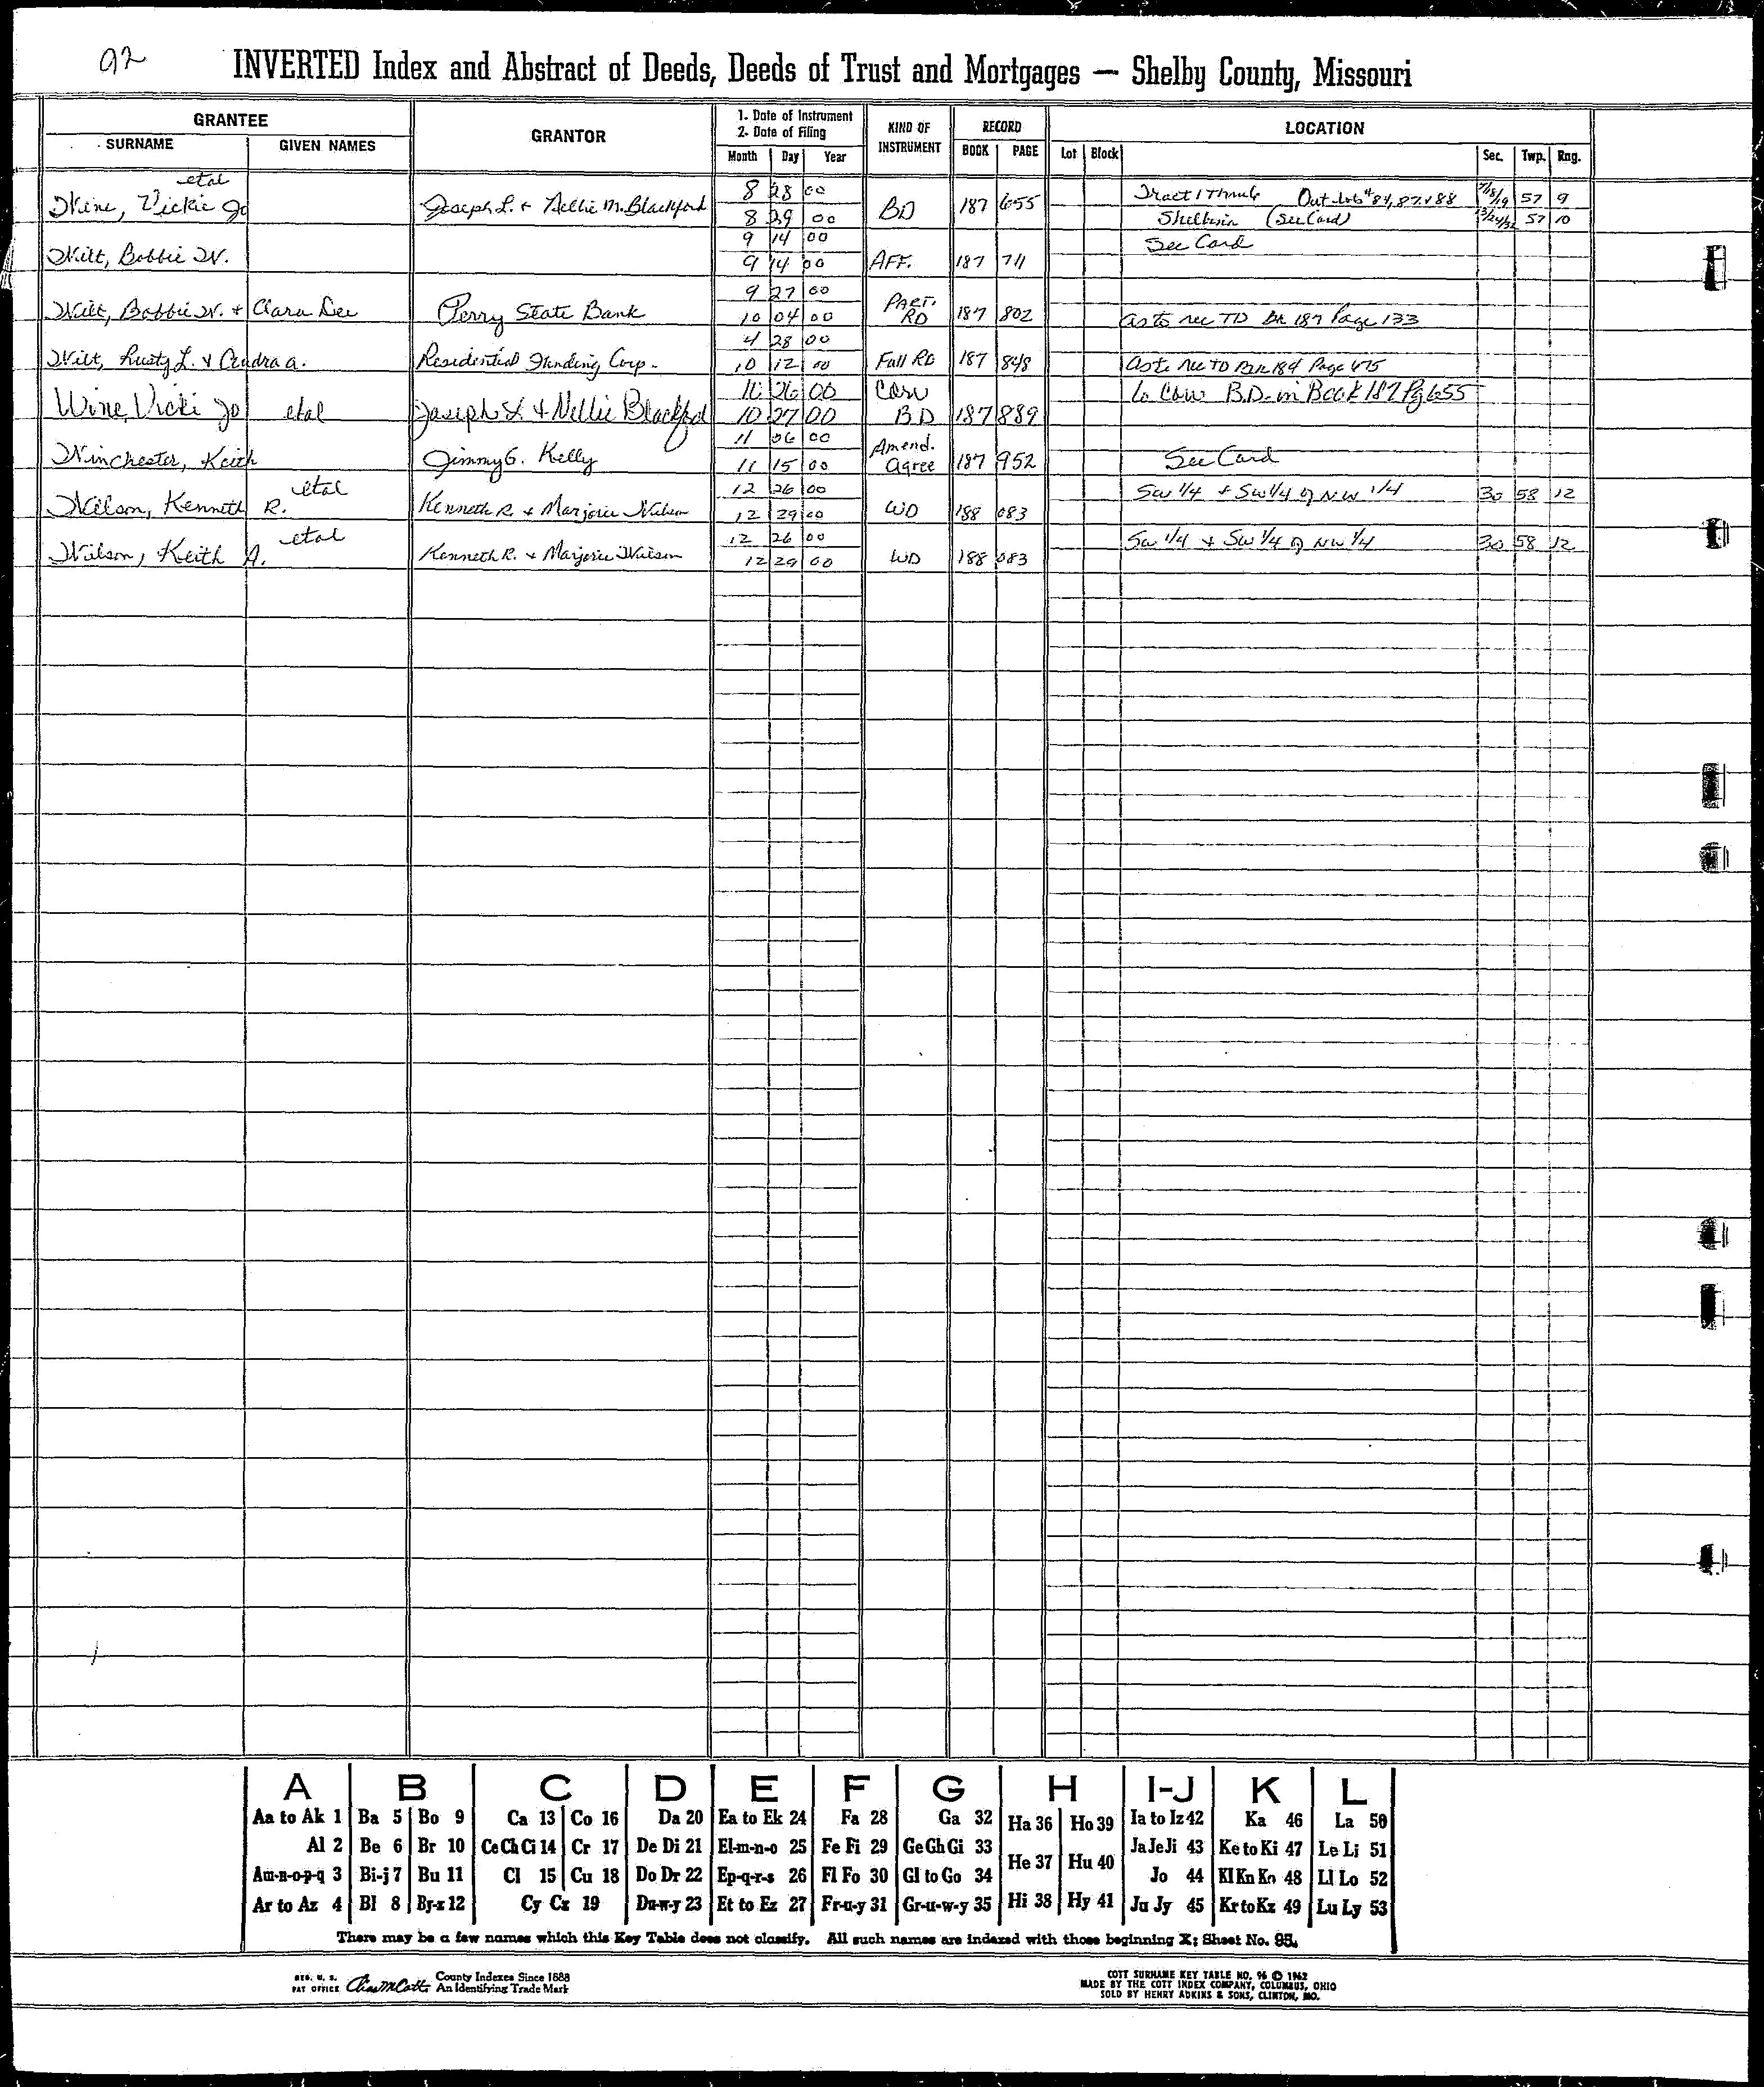 92
INVERTED Index and Abstract of Deeds, Deeds of Trust and Mortgages — Shelby County, Missouri
GRANTEE
SURNAME GIVEN NAMES
GRANTOR
1. Date of Instrument
2. Date of Filing
Month Day Year
KIND OF
INSTRUMENT
RECORD
BOOK PAGE
LOCATION
Lot Block Sec. Twp. Rng.
etal 8 28 00 Tract 1 Thru 6 Out Lots # 84, 87 & 88 7/18/19 57 9
Wine, Vickie Jo Joseph L. & Nellie M. Blackford 8 29 00 BD 187 655 Shelbina (See Card) 57 10
9 14 00 See Card
Wilt, Bobbie W. 9 14 00 AFF. 187 711
9 27 00 PART.
Wilt, Bobbie W. & Clara Dee Perry State Bank 10 04 00 RD 187 802 as to rec TD BK 187 Page 133
4 28 00
Wilt, Rusty L. & Cendra A. Residential Funding Corp. 10 12 00 Full RD 187 848 as to rec TD BK 184 Page 475
10 26 00 Corr to Corr B.D. in Book 187 Pg 655
Wine, Vicki Jo etal Joseph L & Nellie Blackford 10 27 00 BD 187 889
11 06 00 Amend.
Winchester, Keith Jimmy G. Kelly 11 15 00 agree 187 952 See Card
etal 12 26 00 SW 1/4 + SW 1/4 of NW 1/4 30 58 12
Wilson, Kenneth R. Kenneth R. & Marjorie Wilson 12 29 00 WD 188 083
etal 12 26 00 SW 1/4 + SW 1/4 of NW 1/4 30 58 12
Wilson, Keith A. Kenneth R. & Marjorie Wilson 12 29 00 WD 188 083
A B C D E F G H I-J K L
Aa to Ak 1 Ba 5 Bo 9 Ca 13 Co 16 Da 20 Ea to Ek 24 Fa 28 Ga 32 Ha 36 Ho 39 Ia to Iz 42 Ka 46 La 50
Al 2 Be 6 Br 10 Ce Ch Ci 14 Cr 17 De Di 21 El-m-n-o 25 Fe Fi 29 Ge Gh Gi 33 He 37 Hu 40 Ja Je Ji 43 Ke to Ki 47 Le Li 51
Am-n-o-p-q 3 Bi-j 7 Bu 11 Cl 15 Cu 18 Do Dr 22 Ep-q-r-s 26 Fl Fo 30 Gl to Go 34 Hi 38 Hy 41 Jo 44 Kl Kn Ko 48 Ll Lo 52
Ar to Az 4 Bl 8 By-z 12 Cy Cz 19 Du-w-y 23 Et to Ez 27 Fr-u-y 31 Gr-u-w-y 35 Ju Jy 45 Kr to Kz 49 Lu Ly 53
There may be a few names which this Key Table does not classify. All such names are indexed with those beginning X; Sheet No. 95.
REG. U. S.
PAT OFFICE
County Indexes Since 1888
An Identifying Trade Mark
COTT SURNAME KEY TABLE NO. 96 © 1962
MADE BY THE COTT INDEX COMPANY, COLUMBUS, OHIO
SOLD BY HENRY ADKINS & SONS, CLINTON, MO.